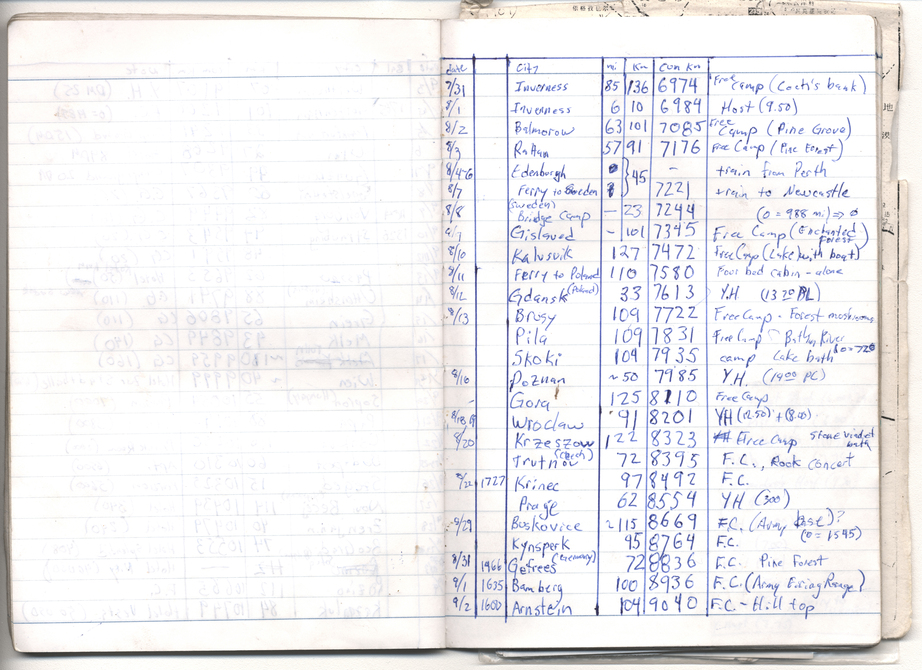 date City mi Km Cum Km
7/31 Inverness 85 136 6974 Free Camp (Cacti's bank)
8/1 Inverness 6 10 6984 Host (9.50)
8/2 Balmorow 63 101 7085 Free Camp (Pine Grove)
8/3 57 91 7176 Free Camp (Pine Forest)
8/4-6 Edenburgh } 45 - train from Perth
8/7 Ferry to Sweden 7221 train to Newcastle
8/8 (Sweden) Bridge Camp - 23 7244 (0 = 988 mi) => 0
Gislaved - 101 7345 Free Camp (Enchanted Forest)
8/10 Kalvsvik 127 7472 Free Camp (Lake with boat)
8/11 Ferry to Poland 110 7580 Four bed cabin - alone
8/12 Gdansk (Poland) 33 7613 Y.H
8/13 Brusy 109 7722 Free Camp - Forest mushrooms
Pila 109 7831 Free Camp River
Skoki 104 7935 camp Lake bath
8/16 Poznan ~50 7985 Y.H.
Gora 125 8110 Free Camp
Wroclaw 91 8201 YH (12.50) + (8.00)
8/20 Krzeszow 122 8323 Free Camp
Trutnov (Czech) 72 8395 F.C., Rook concert
8/22 1727 Krinec 97 8492 F.C.
Prage 62 8554 YH (300)
8/29 Boskovice ~115 8669 F.C. (Army base)?
Kynsperk 95 8764 F.C. (0=1545)
8/31 1466 Gefrees (Germany) 72 8836 F.C. Pine Forest
9/1 1635 Bamberg 100 8936 F.C. (Army Firing Range)
9/2 1600 Arnstein 104 9040 F.C. - Hill top